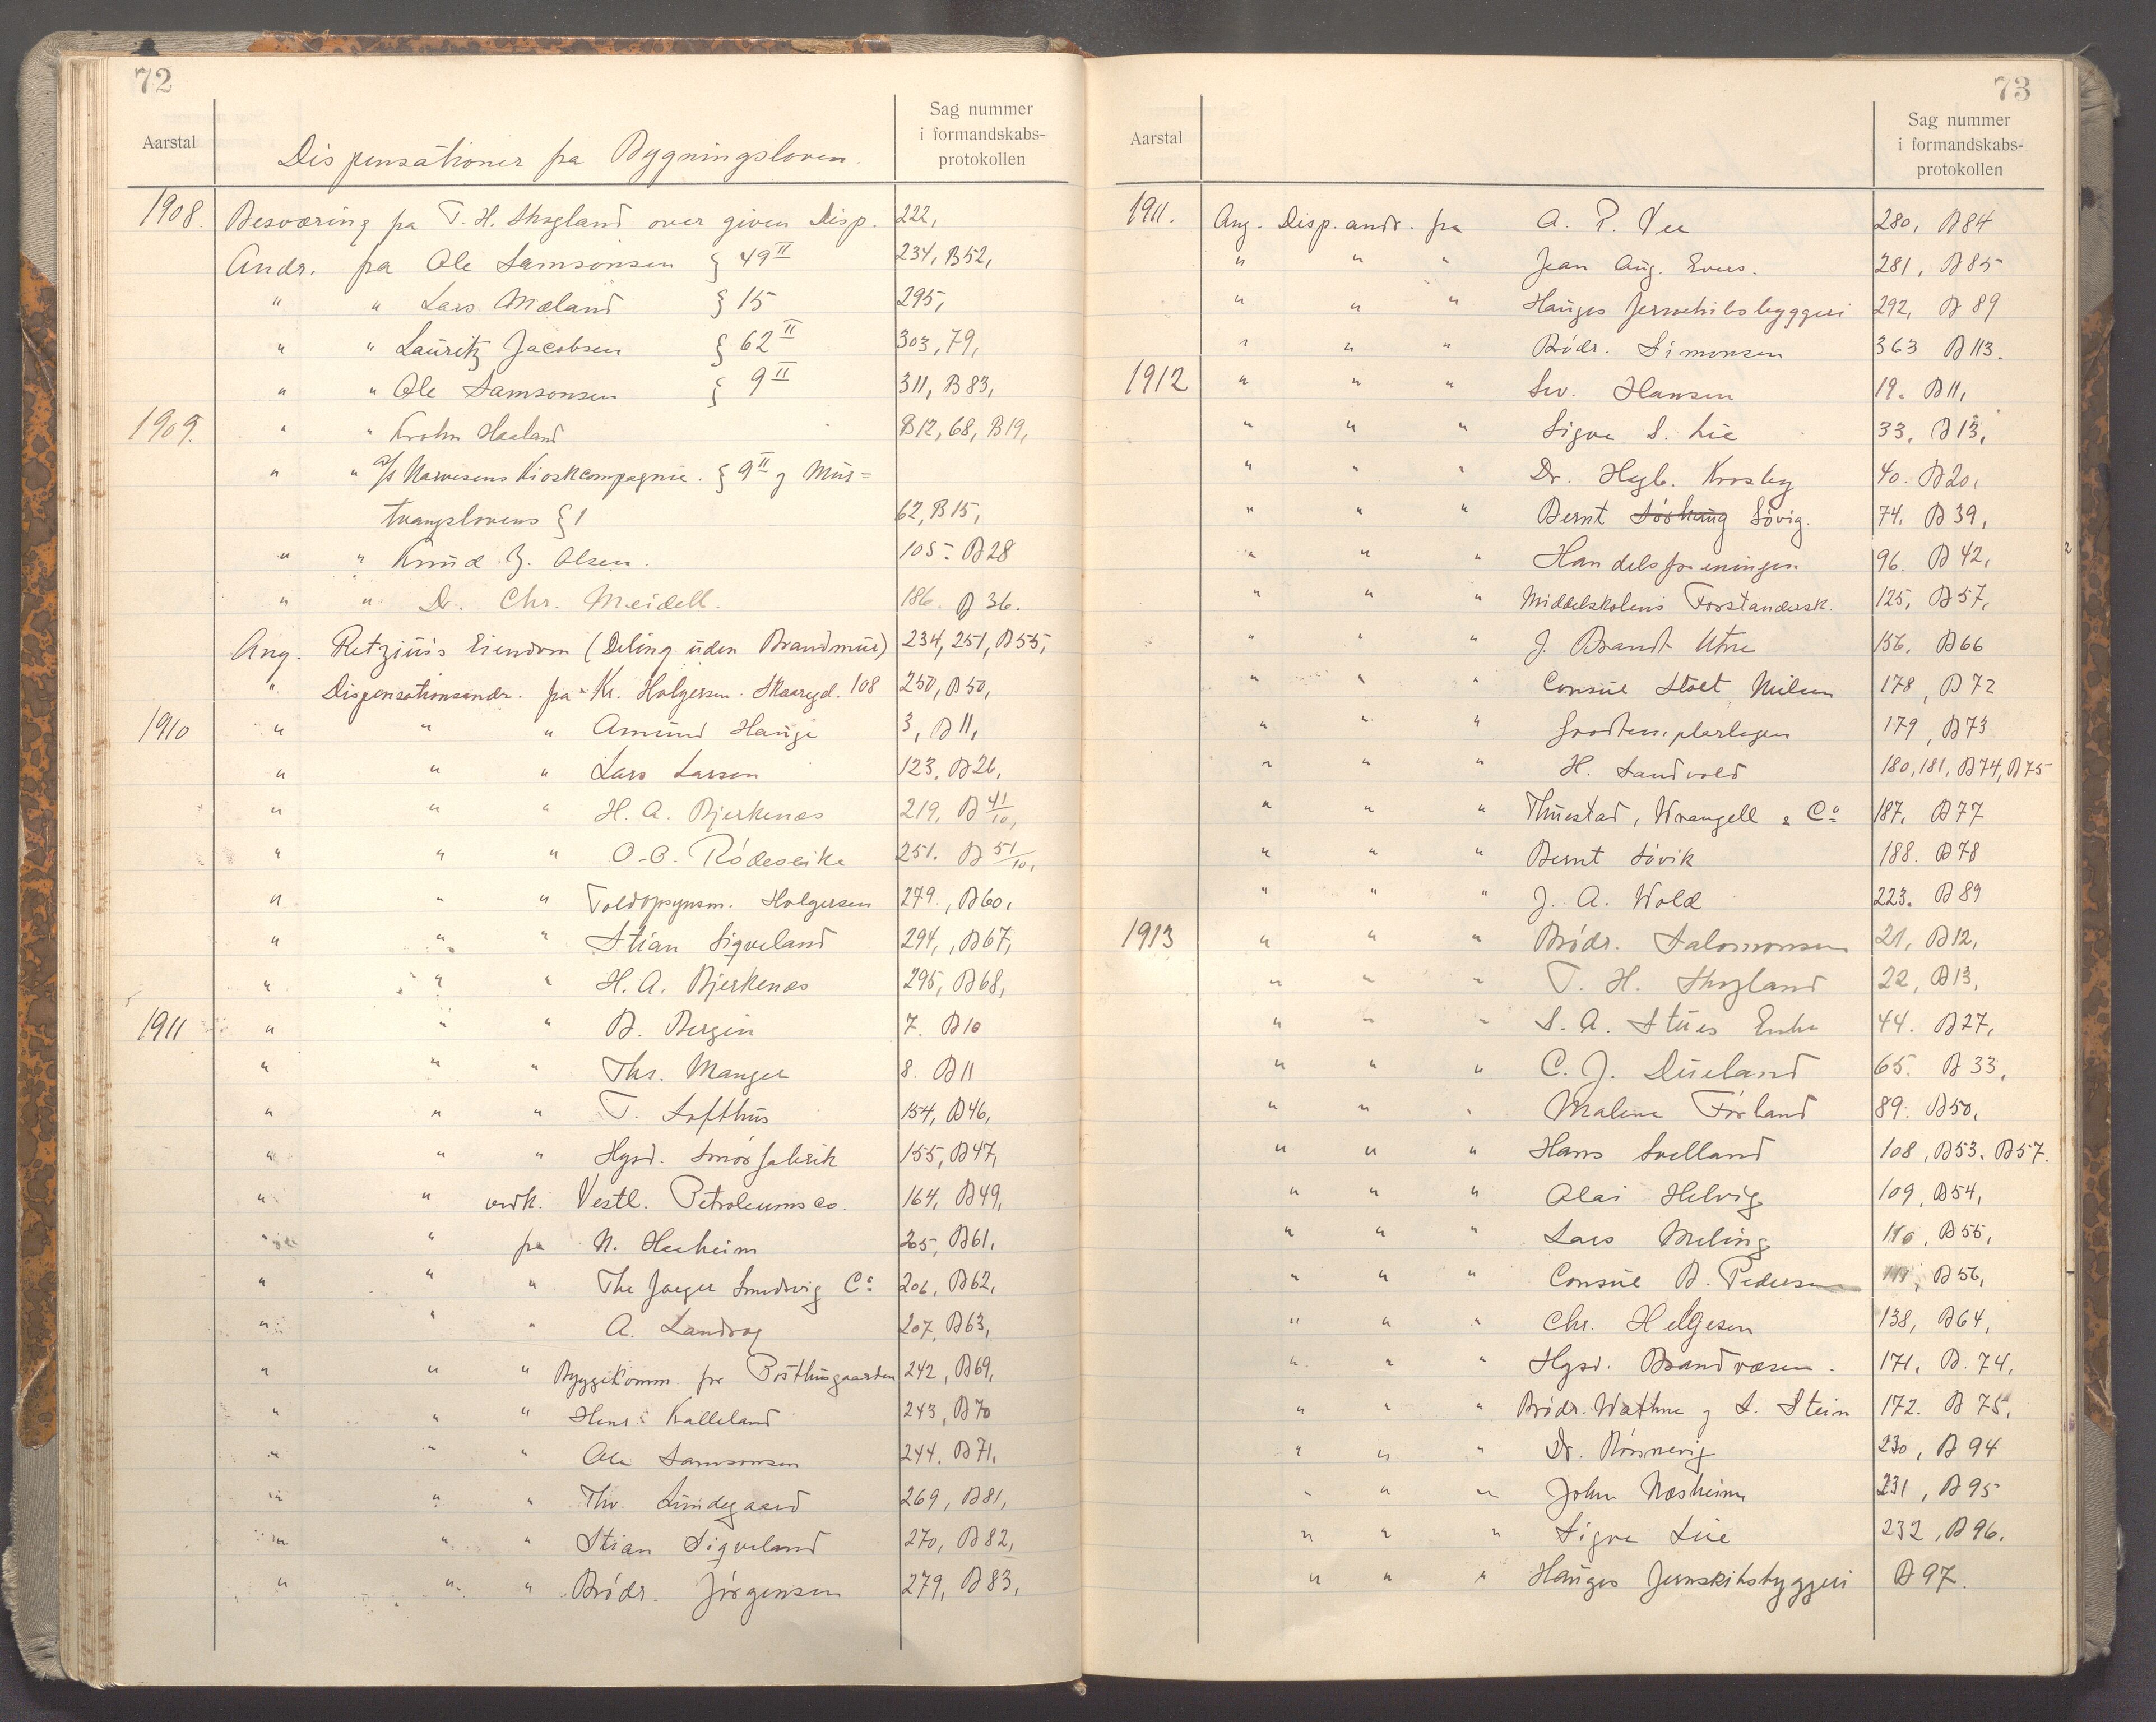 72
Aarstal
Dispensationer fra Bygningsloven.
Sag nummer
i formandskabs-
protokollen
1908. Besværing fra T. H. Skogland over given Disp. 222,
Andr. fra Ole Samsonsen § 49 II 234, B52,
" " Lars Mæland § 15 295,
" " Lauritz Jacobsen § 62 II 303, 79,
" " Ole Samsonsen § 9 II 311, B83,
1909. " " Krohn Haaland B12, 68, B19,
" " A/s Narvesens Kioskcompagnie. § 9 II og Mur=
tvangslovens § 1 62, B15,
" " Knud Olsen. 105. B28
" " Dr. Chr. Meidell. 186. B 36.
Ang. Retzius's Eiendom (Deling uden Brandmur) 234, 251, B55,
" Dispensationsandr. fra Kr. Holgersen. Skaaregd. 108 250, B50,
1910 " " " Amund Hauge 3, B11,
" " " Lars Larsen 123, B26,
" " " H. A. Bjerkenæs 219, B 41/10,
" " " O. O. Rödeseike 251. B 51/10,
" " " Toldopsynsm. Holgersen 279, B60,
" " " Stian Sigveland 294, B67,
" " " H. A. Bjerkenæs 295, B68,
1911 " " " B. Bergin 7. B10
" " " Ths. Manger 8. B11
" " " T. Lofthus 154, B46,
" " " Hgsd. Smörfabrik 155, B47,
" " vedk. Vestl. Petroleumsco. 164, B49,
" " fra N. Heeheim 205, B61,
" " " The Jaeger Smedvig Co 206, B62,
" " " A. Landvog 207, B63,
" " " Byggekomm. for Posthusgaarden 242, B69,
" " " Henr. Kalleland 243, B70
" " " Ole Samsonsen 244. B71,
" " " Thv. Lindegaard 269, B81,
" " " Stian Sigveland 270, B82,
" " " Brödr. Jörgensen 279, B83,
73
Aarstal
Sag nummer
i formandskabs-
protokollen
1911. Ang. Disp. andr. fra A. P. Vee 280, B84
" " " Jean Aug. Evers. 281, B85
" " " Hauges Jernskibsbyggeri 292, B 89
" " " Brödr. Simonsen 363 B113.
1912 " " " Sev. Hansen 19. B11,
" " " Sigve S. Lie 33, B13,
" " " Dr. Hagb. Krosby 40. B20,
" " " Bernt Sörhaug Sövig. 74, B39,
" " " Handelsforeningen 96. B 42,
" " " Middelskolens Forstandersk. 125, B57,
" " " J. Brandt Utne 156. B66
" " " Consul Stolt Nielsen 178, B72
" " " Goodtemplarlogen 179, B73
" " " H. Sandvold 180, 181, B74, B75
" " " Thuestad, Wrangell & Co 187, B77
" " " Bernt Sövik 188. B78
" " " J. A. Wold 223. B89
1913 " " " Brödr. Salomonsen 21, B12,
" " " T. H. Skogland 22, B13,
" " " S. A. Stues Enke 44. B27,
" " " C. J. Dueland 65. B33,
" " " Malene Förland 89. B50,
" " " Hans Svelland 108, B53. B57.
" " " Olai Helvig 109, B54,
" " " Lars Meling 110, B55,
" " " Consul B. Pedersen 111, B56,
" " " Chr. Helgesen 138, B64,
" " " Hgsd. Brandvæsen. 171, B. 74,
" " " Brödr. Wathne og S. Stein 172. B 75,
" " " Dr. Rönnevig 230, B 94
" " " John Næsheim 231, B95
" " " Sigve Lie 232, B96.
" " " Hauges Jernskibsbyggeri B97.